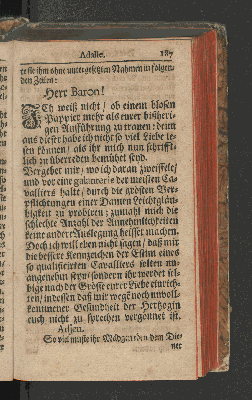 Adalie. 187
te sie ihm ohne untergesetzten Nahmen in folgen-
den Zeilen:
Herr Baron!
ICh weiß nicht / ob einem blosen
Pappier mehr als euer bißheri-
gen Aufführung zu trauen; denn
aus dieser habe ich nicht so viel Liebe le-
sen können / als ihr mich nun schrifft-
lich zu überreden bemühet seyd.
Vergebet mir / wo ich daran zweiffele /
und vor eine galanterie der meisten Ca-
valliers halte / durch die grösten Ver-
pflichtungen einer Damen Leichtgläu-
bigkeit zu probiren; zumahl mich die
schlechte Anzahl der Annehmlichkeiten
keine ander Auslegung heissen machen.
Doch ich will eben nicht sagen / daß mir
die bessere Kennzeichen der Estim eines
so qualificirten Cavalliers solten un-
angenehm seyn / sondern ihr werdet sel-
bige nach der Grösse eurer Liebe einrich-
ten / indessen daß mir wegen noch unvoll-
kommener Gesundheit der Hertzogin
euch nicht zu sprechen vergönnet ist.
So viel muste ihr Mädgen den dem Die-
ner